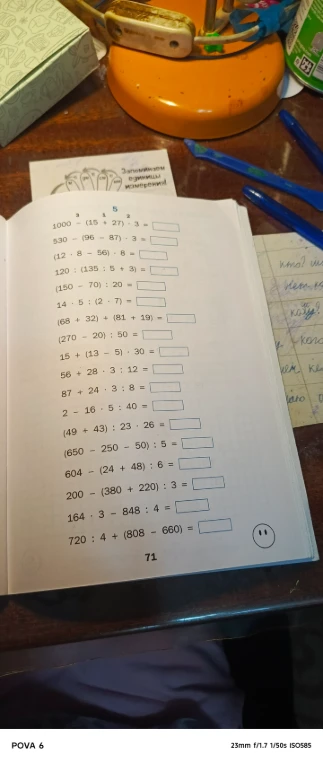 Запоминаем
единицы
измерения!
5
3 1 2
1000 − (15 + 27) · 3 =
530 − (96 − 87) · 3 =
(12 · 8 − 56) · 8 =
120 : (135 : 5 + 3) =
(150 − 70) : 20 =
14 · 5 : (2 · 7) =
(68 + 32) + (81 + 19) =
(270 − 20) : 50 =
15 + (13 − 5) · 30 =
56 + 28 · 3 : 12 =
87 + 24 · 3 : 8 =
2 − 16 · 5 : 40 =
(49 + 43) : 23 · 26 =
(650 − 250 − 50) : 5 =
604 − (24 + 48) : 6 =
200 − (380 + 220) : 3 =
164 · 3 − 848 : 4 =
720 : 4 + (808 − 660) =
71
POVA 6
23mm f/1.7 1/50s ISO585